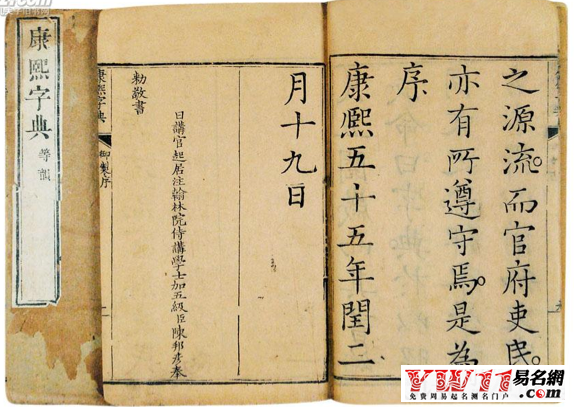 之源流。而官府吏民。
亦有所遵守焉。是為
序
康熙五十五年閏二
月十九日
日講官起居注翰林院侍講學士加五級臣陳邦彥奉
勅敬書
康熙字典 御製序
康熙字典 等韻
易名網
免費周易起名測名門户